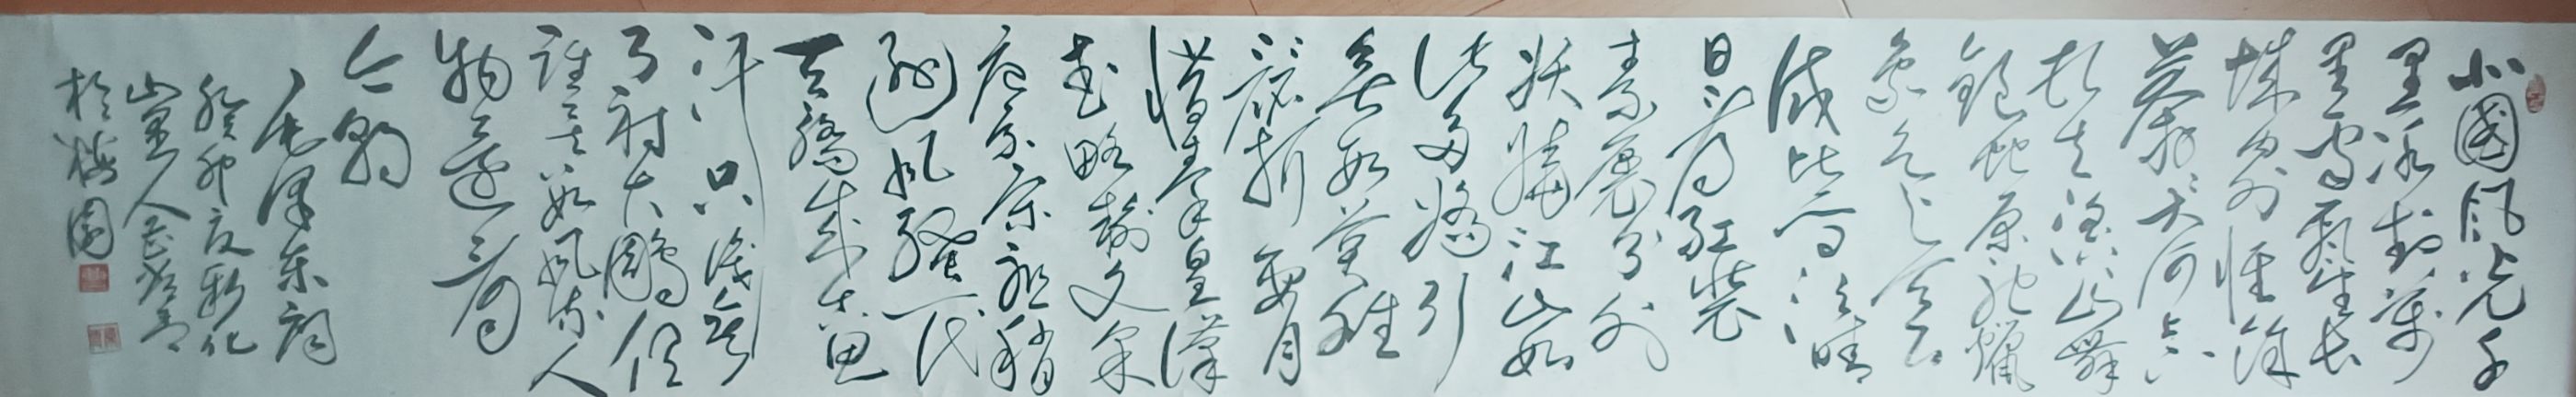 北國風光千
里冰封萬
里雪飄望長
城內外惟餘
莽莽大河上下
頓失滔滔山舞
銀蛇原馳蠟
象欲與天公
試比高須晴
日看紅裝
素裹分外
妖嬈江山如
此多嬌引
無數英雄
競折腰
惜秦皇漢
武略輸文采
唐宗宋祖稍
遜風騷一代
天驕成吉思
汗只識彎
弓射大鵰俱
往矣數風流人
物還看
今朝
毛澤東詞
癸卯夏新化
山里人
於梅園